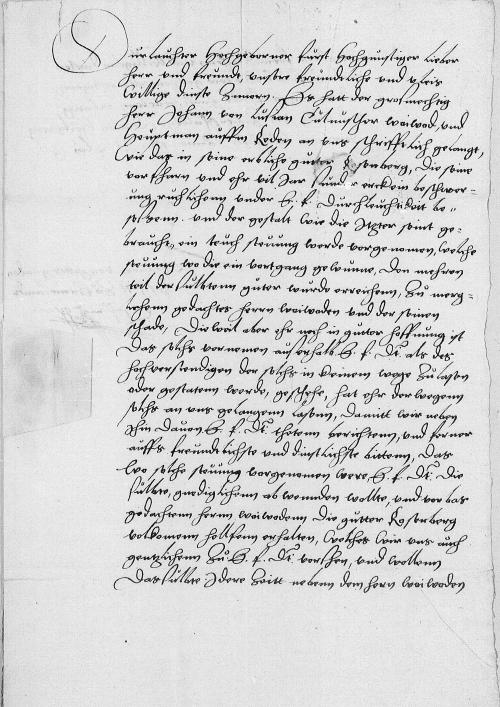 Durlauchter Hochgeborner furst Hochgunstiger lieber
herr vnd freundt, vnsere freuntliche vnd vleis
willige dinste Zuuorn. Es hatt der grosmechtig
herr Johann von Lusian Culmischer woiwod, vnd
Heuptman auffm Reden an vns schrifftlich gelangt,
wie das in seine erbliche gutter Rosenberg, die seine
vorfharn vnd ehr vil Jar
vnder E. f. Durchleuchtikeit be„
sitzenn. vnd der gestalt wie die itzter seint ge„
braucht, ein teuch steuung werde vorgenomen, welche
steuung wo die ein vortgang gewunne, den mehren
teil der selbtenn gutter wurde erreichenn, Zu merg„
lichenn gedachtes herrn woiwoden vnd der seinen
schade, Die weil aber ehr noch in gutter hoffnung ist
das solchs vornemen ausserhalb E. f. D. als des
hochverstendigen der solchs in keinem wege Zulassen
oder gestaten werde, geschehe, hat ehr derwegenn
solchs an vns gelangenn lassenn, damitt wir neben
ihm dauon E. f. D. thetenn berichtenn, vnd ferner
auffs freundtlichste vnd dinstlichste bittenn, das
wo solche steuung vorgenomen were, E. f. D. die
selbte, gnediglichenn abwennden wollte, vnd vor bas
gedachtenn herrn woiwodenn die gutter Rosenberg
volkomenn helffenn erhalten, welches wir vns auch
gentzlichenn Zu E. f. D. versehen, vnd wollenn
das selbte Idere Zeitt nebenn dem hern woiwoden